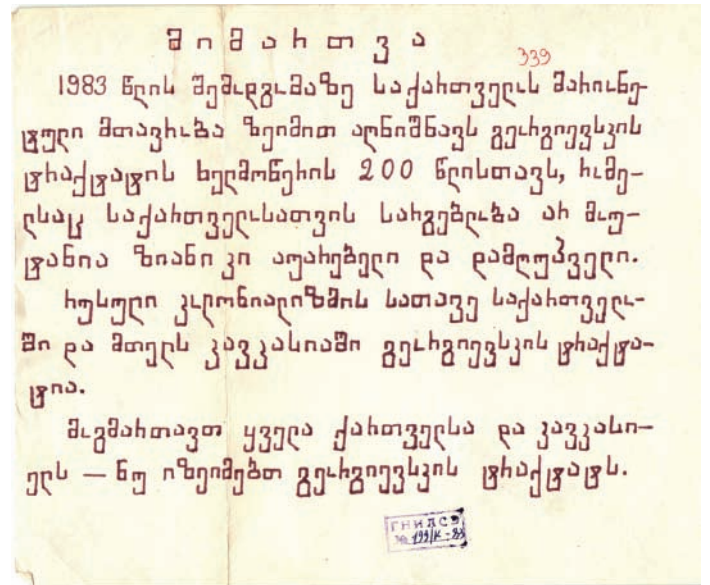 მიმართვა
339
1983 წლის შემოდგომაზე საქართველოს მარიონე-
ტული მთავრობა ზეიმით აღნიშნავს გეორგიევსკის
ტრაქტატის ხელმოწერის 200 წლისთავს, რომე-
ლსაც საქართველოსათვის სარგებლობა არ მოუ-
ტანია ზიანი კი აუარებელი და დამღუპველი.
რუსული კოლონიალიზმის სათავე საქართველო-
ში და მთელს კავკასიაში გეორგიევსკის ტრაქტა-
ტია.
მოგმართავთ ყველა ქართველსა და კავკასი-
ელს — ნუ იზეიმებთ გეორგიევსკის ტრაქტატს.
ГНИЛСЭ
№ 199/К-83